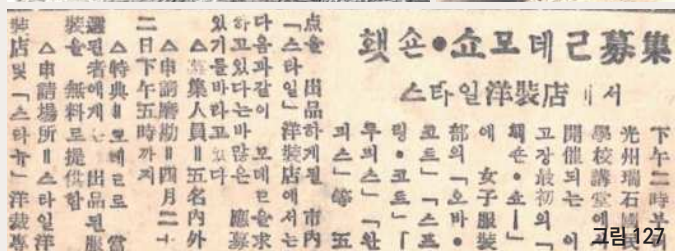 횃숀•쇼모데ㄹ募集
스타일洋裝店〓서
下午二時부
光州瑞石國
學校講堂에
開催되는 이
고장最初의「
횃숀•쇼ー」
에 女子服裝
部의「오바•
코트」「스프
링•코트」「
투피스」「완
피스」等 五
点을 出品하게된 市內
「스타일」洋裝店에서는
다음과같이 모데ㄹ을求
하고있다는바많은 應募
있기를바라고있다
△募集人員〓五名內外
△申請磨勘〓四月二十
二日下午五時까지
△特典〓모데ㄹ로 當
選된者에게는 出品된服
裝을 無料로提供함
△申請場所〓스타일洋
裝店및「스타뉴」洋裁專
그림 127